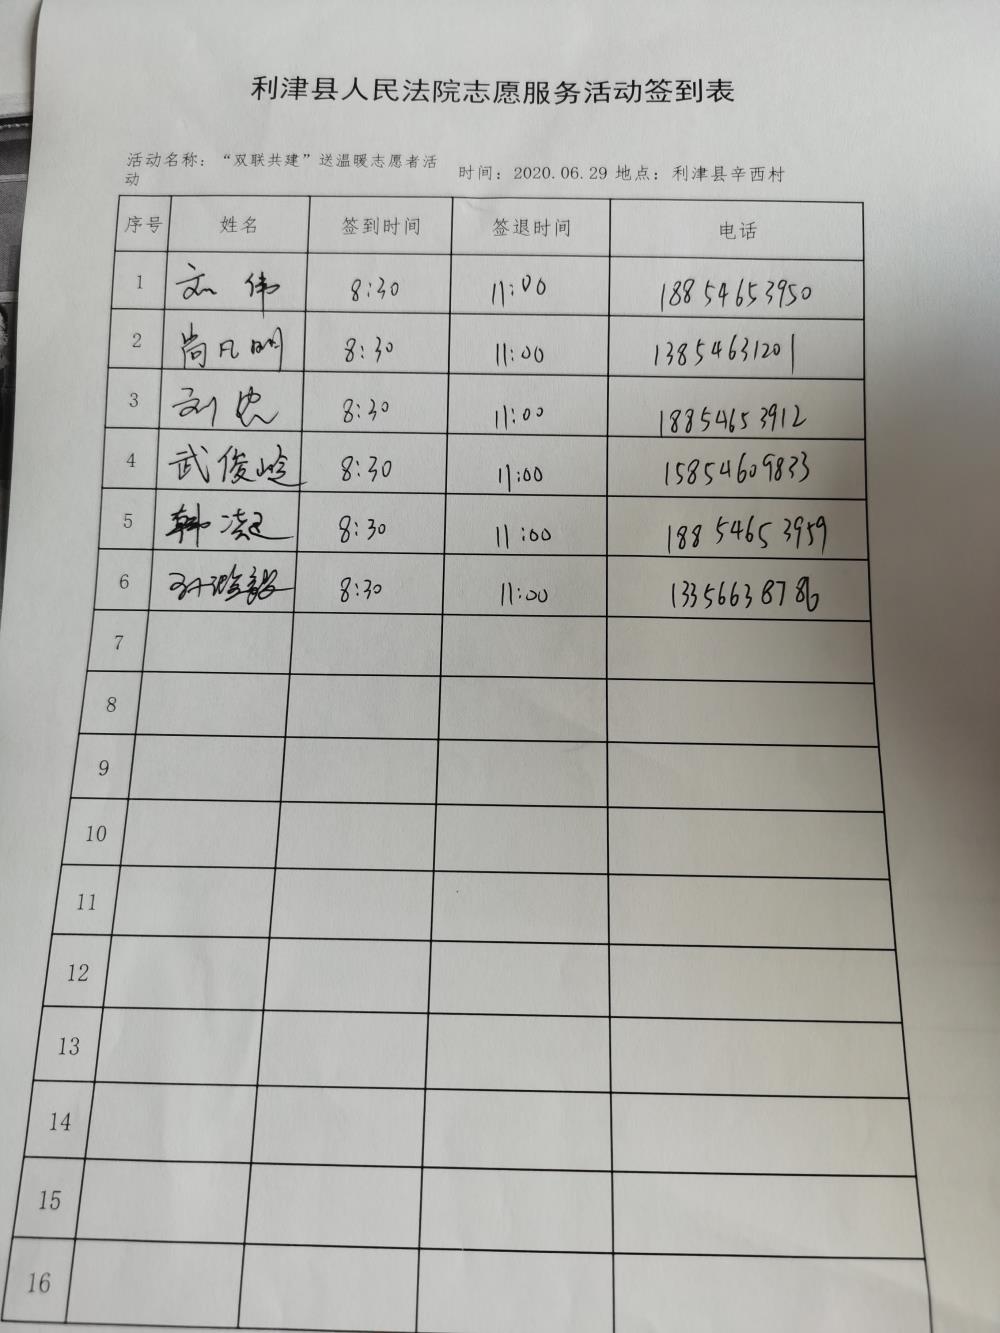 利津县人民法院志愿服务活动签到表
活动名称：“双联共建”送温暖志愿者活
动
时间：2020.06.29 地点：利津县辛西村
序号 姓名 签到时间 签退时间 电话
1 刘伟 8:30 11:00 18854653950
2 尚凡明 8:30 11:00 13854631201
3 刘忠 8:30 11:00 18854653912
4 武俊岭 8:30 11:00 15854609833
5 韩凌 8:30 11:00 18854653959
6 孙 8:30 11:00 13356638786
7
8
9
10
11
12
13
14
15
16